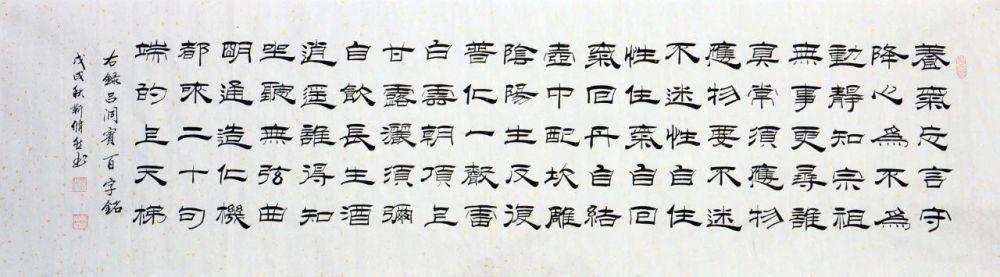 養氣忘言守
降心為不為
動靜知宗祖
無事更尋誰
真常須應物
應物要不迷
不迷性自住
性住氣自回
氣回丹自結
壺中配坎離
陰陽生反復
普化一聲雷
白雲朝頂上
甘露灑須彌
自飲長生酒
逍遙誰得知
坐聽無弦曲
明通造化機
都來二十句
端的上天梯
右錄呂洞賓百字銘
戊戌秋